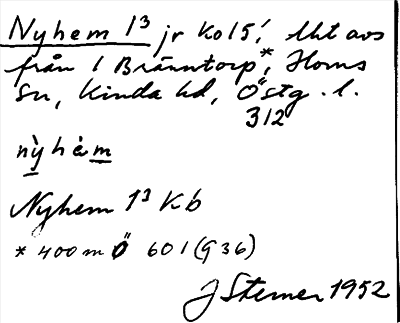 Nyhem 1³ jr Ko15; Uht avs
från 1 Bränntorp*, Horns
sn, Kinda hd, Östg. l.
312
nỳhèm
Nyhem 1³ Kb
* 400 m Ö 601 (G 36)
J Sterner 1952